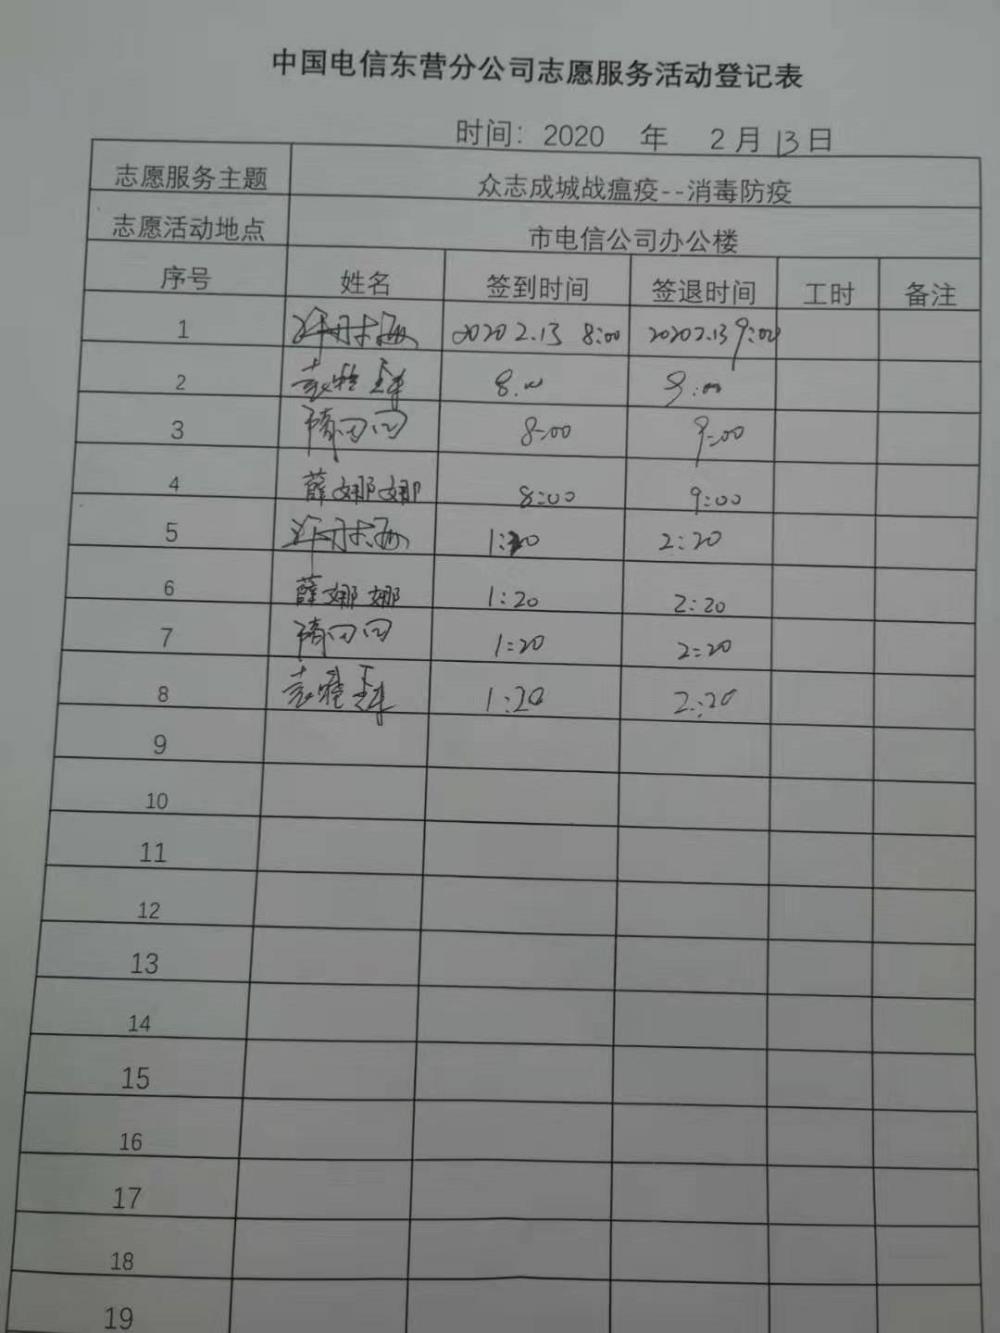 中国电信东营分公司志愿服务活动登记表
时间：2020 年 2月13日
志愿服务主题 众志成城战瘟疫--消毒防疫
志愿活动地点 市电信公司办公楼
序号 姓名 签到时间 签退时间 工时 备注
1 2020 2.13 8:00 2020 2.13 9:00
2 8:00 9:00
3 8:00 9:00
4 薛娜娜 8:00 9:00
5 1:20 2:20
6 薛娜娜 1:20 2:20
7 1:20 2:20
8 1:20 2:20
9
10
11
12
13
14
15
16
17
18
19